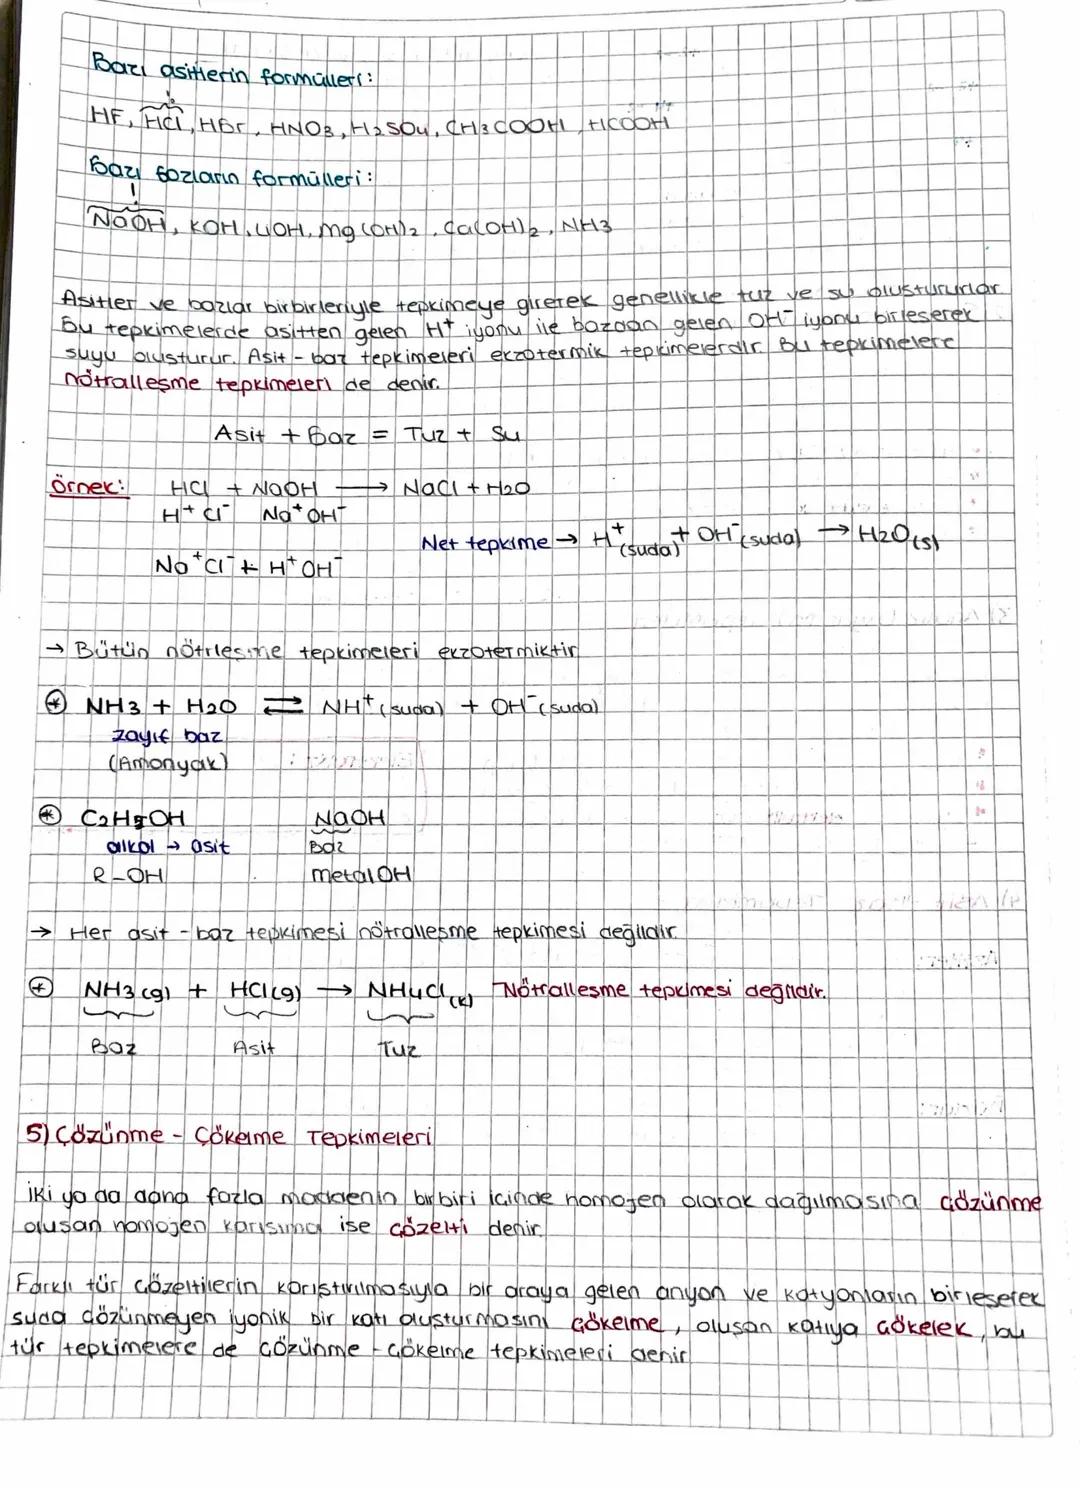 Bazı asitlerin formülleri:
HF, HCl, HBr, HNO3, H2SO4, CH3COOH, HCOOH
Bazı bazların formülleri:
!
NaOH, KOH, LiOH, Mg(OH)2, Ca(OH)2, NH3
Asitler ve bazlar birbirleriyle tepkimeye girerek genellikle tuz ve su oluştururlar
Bu tepkimelerde asitten gelen H+ iyonu ile bazdan gelen OH- iyonu birleşerek
suyu oluşturur. Asit - baz tepkimeleri ekzotermik tepkimelerdir. Bu tepkimelere
nötralleşme tepkimeleri de denir.
Asit + Baz = Tuz + Su
Örnek: HCl + NaOH → NaCl + H2O
H+ Cl- Na+ OH-
Net tepkime → H+(suda) + OH-(suda) → H2O(s)
Na+Cl- + H+OH-
→ Bütün nötrleşme tepkimeleri ekzotermiktir
* NH3 + H2O ⇄ NH+(suda) + OH-(suda)
zayıf baz
(Amonyak)
* C2H5OH NaOH
alkol → asit Baz
R-OH metalOH
→ Her asit - baz tepkimesi nötralleşme tepkimesi değildir.
* NH3(g) + HCl(g) → NH4Cl(k) Nötralleşme tepkimesi değildir.
Baz Asit Tuz
5) Çözünme - Çökelme Tepkimeleri
İki ya da daha fazla maddenin birbiri içinde homojen olarak dağılmasına çözünme
oluşan homojen karışıma ise çözelti denir.
Farklı tür çözeltilerin karıştırılmasıyla bir araya gelen anyon ve katyonların birleşerek
suda çözünmeyen iyonik bir katı oluşturmasını çökelme, oluşan katıya çökelek, bu
tür tepkimelere de çözünme - çökelme tepkimeleri denir